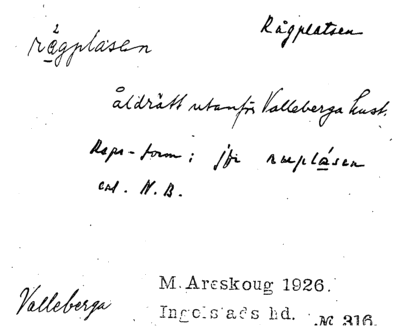 Rågplatsen
rågplasen
åldrätt utanför Valleberga kust.
form; jfr
enl. N.B.
Valleberga
M. Areskoug 1926.
Ingelstads hd. № 316.